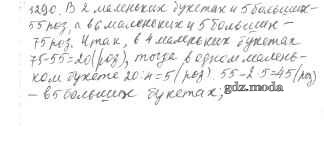 1290. В 2 маленьких букетах и 5 больших-
55 роз, а в 6 маленьких и 5 больших -
75 роз. Итак, в 4 маленьких букетах
75-55=20(роз), тогда в одном малень-
ком букете 20:4=5(роз). 55-2·5=45(роз)
- в 5 больших букетах;
gdz.moda